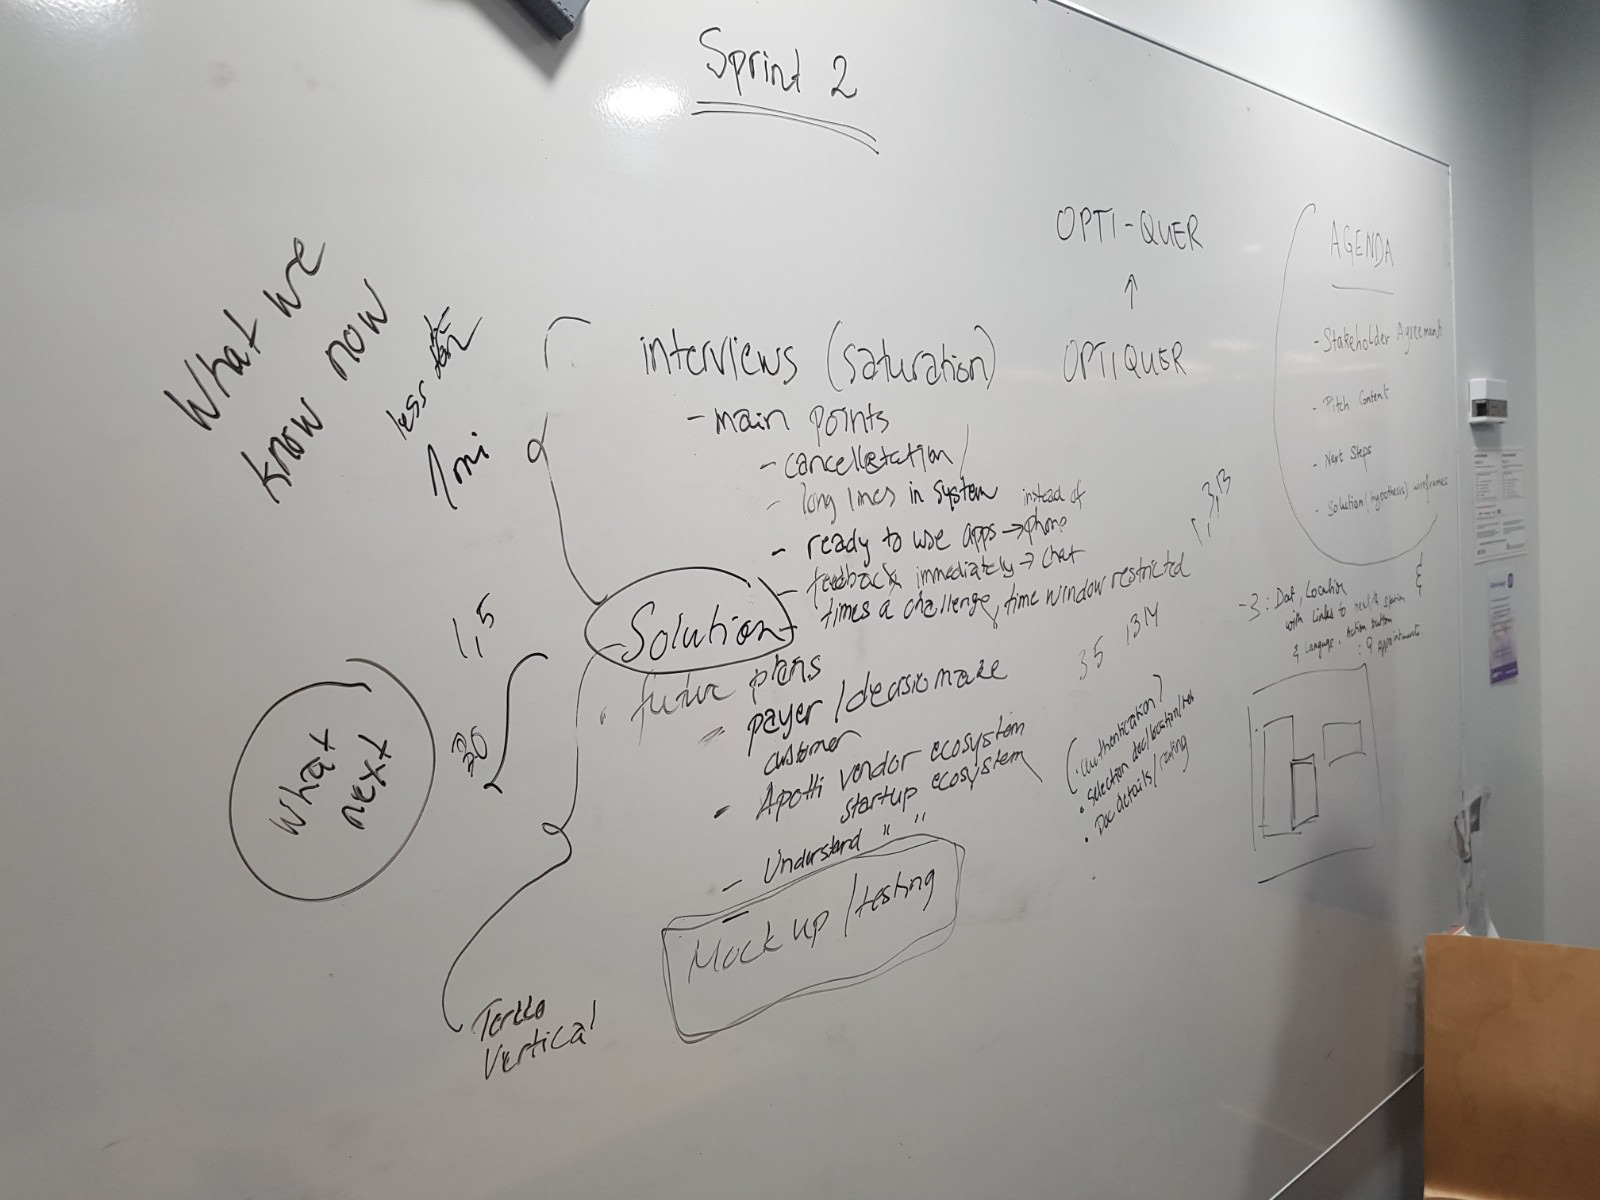 Sprint 2
What we
know now
less than
1 mi
interviews (saturation)
- main points
- cancellation
- long lines in system
- ready to use apps → instead of phone
- feedback immediately → chat
times a challenge, time window restricted
Solution
future plans
payer / decisio make
customer
- Apotti vendor ecosystem
startup ecosystem
- Understand " "
Mock up / testing
1,5
What
next
Vertical
OPTI-QUER
↑
OPTIQUER
1, 3, 13
3 5 13 14
(authentication?)
• selection doc/location/
• Doc details/rating
AGENDA
- Stakeholder Agreement
- Pitch Content
- Next Steps
- Solution (hypothesis) wireframes
- 3: Dat, Location
with Links to
& Language. Action button
: Appointments